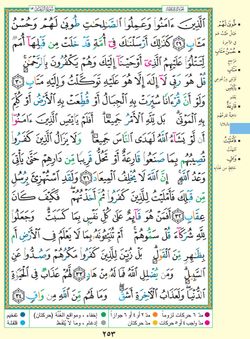 ٱلَّذِينَ ءَامَنُوا۟ وَعَمِلُوا۟ ٱلصَّٰلِحَٰتِ طُوبَىٰ لَهُمْ وَحُسْنُ
مَـَٔابٍ ٢٩ كَذَٰلِكَ أَرْسَلْنَٰكَ فِىٓ أُمَّةٍ قَدْ خَلَتْ مِن قَبْلِهَآ أُمَمٌ
لِّتَتْلُوَا۟ عَلَيْهِمُ ٱلَّذِىٓ أَوْحَيْنَآ إِلَيْكَ وَهُمْ يَكْفُرُونَ بِٱلرَّحْمَٰنِ
قُلْ هُوَ رَبِّى لَآ إِلَٰهَ إِلَّا هُوَ عَلَيْهِ تَوَكَّلْتُ وَإِلَيْهِ مَتَابِ ٣٠
وَلَوْ أَنَّ قُرْءَانًا سُيِّرَتْ بِهِ ٱلْجِبَالُ أَوْ قُطِّعَتْ بِهِ ٱلْأَرْضُ
أَوْ كُلِّمَ بِهِ ٱلْمَوْتَىٰ بَل لِّلَّهِ ٱلْأَمْرُ جَمِيعًا أَفَلَمْ يَا۟يْـَٔسِ ٱلَّذِينَ ءَامَنُوٓا۟
أَن لَّوْ يَشَآءُ ٱللَّهُ لَهَدَى ٱلنَّاسَ جَمِيعًا وَلَا يَزَالُ ٱلَّذِينَ كَفَرُوا۟
تُصِيبُهُم بِمَا صَنَعُوا۟ قَارِعَةٌ أَوْ تَحُلُّ قَرِيبًا مِّن دَارِهِمْ حَتَّىٰ يَأْتِىَ
وَعْدُ ٱللَّهِ إِنَّ ٱللَّهَ لَا يُخْلِفُ ٱلْمِيعَادَ ٣١ وَلَقَدِ ٱسْتُهْزِئَ بِرُسُلٍ
مِّن قَبْلِكَ فَأَمْلَيْتُ لِلَّذِينَ كَفَرُوا۟ ثُمَّ أَخَذْتُهُمْ فَكَيْفَ كَانَ
عِقَابِ ٣٢ أَفَمَنْ هُوَ قَآئِمٌ عَلَىٰ كُلِّ نَفْسٍۭ بِمَا كَسَبَتْ وَجَعَلُوا۟
لِلَّهِ شُرَكَآءَ قُلْ سَمُّوهُمْ أَمْ تُنَبِّـُٔونَهُۥ بِمَا لَا يَعْلَمُ فِى ٱلْأَرْضِ أَم
بِظَٰهِرٍ مِّنَ ٱلْقَوْلِ بَلْ زُيِّنَ لِلَّذِينَ كَفَرُوا۟ مَكْرُهُمْ وَصُدُّوا۟ عَنِ
ٱلسَّبِيلِ وَمَن يُضْلِلِ ٱللَّهُ فَمَا لَهُۥ مِنْ هَادٍ ٣٣ لَّهُمْ عَذَابٌ فِى ٱلْحَيَوٰةِ
ٱلدُّنْيَا وَلَعَذَابُ ٱلْءَاخِرَةِ أَشَقُّ وَمَا لَهُم مِّنَ ٱللَّهِ مِن وَاقٍ ٣٤
٢٥٣